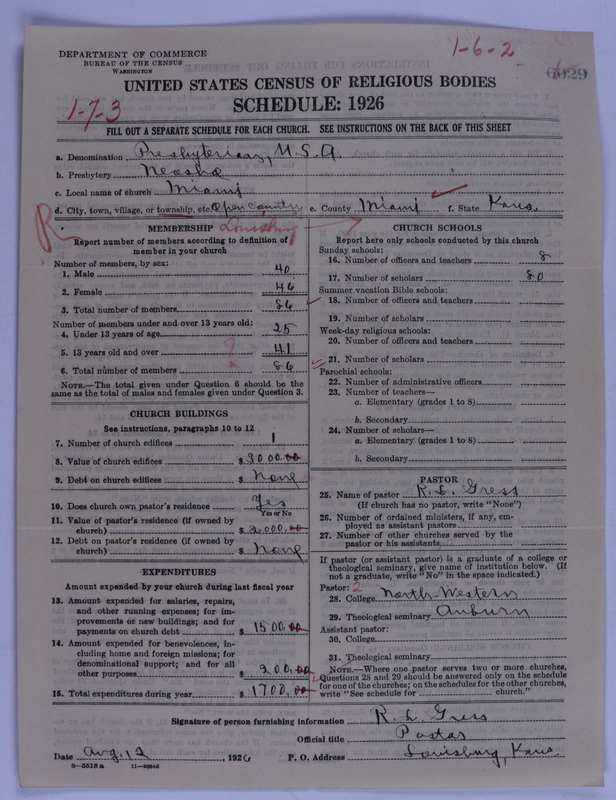 1-6-2
DEPARTMENT OF COMMERCE
BUREAU OF THE CENSUS
WASHINGTON
6929
UNITED STATES CENSUS OF RELIGIOUS BODIES
1-7-3
SCHEDULE: 1926
FILL OUT A SEPARATE SCHEDULE FOR EACH CHURCH. SEE INSTRUCTIONS ON THE BACK OF THIS SHEET
a. Denomination Presbyterian, U.S.A.
b. Presbytery Neosho
c. Local name of church Miami
d. City, town, village, or township, etc. Open Country e. County Miami f. State Kans.
R Louisburg
MEMBERSHIP
Report number of members according to definition of member in your church
Number of members, by sex:
1. Male 40
2. Female 46
3. Total number of members 86
Number of members under and over 13 years old:
4. Under 13 years of age 25
5. 13 years old and over 41
6. Total number of members 86
NOTE.—The total given under Question 6 should be the
same as the total of males and females given under Question 3.
CHURCH BUILDINGS
See instructions, paragraphs 10 to 12
7. Number of church edifices 1
8. Value of church edifices $ 3000.00
9. Debt on church edifices $ None
10. Does church own pastor's residence Yes
Yes or No
11. Value of pastor's residence (if owned by
church) $ 2000.00
12. Debt on pastor's residence (if owned by
church) $ None
EXPENDITURES
Amount expended by your church during last fiscal year
13. Amount expended for salaries, repairs,
and other running expenses; for im-
provements or new buildings; and for
payments on church debt $ 1500.00
14. Amount expended for benevolences, in-
cluding home and foreign missions; for
denominational support; and for all
other purposes $ 200.00
15. Total expenditures during year $ 1700.00
CHURCH SCHOOLS
Report here only schools conducted by this church
Sunday schools:
16. Number of officers and teachers 8
17. Number of scholars 80
Summer vacation Bible schools:
18. Number of officers and teachers
19. Number of scholars
Week-day religious schools:
20. Number of officers and teachers
21. Number of scholars
Parochial schools:
22. Number of administrative officers
23. Number of teachers—
a. Elementary (grades 1 to 8)
b. Secondary
24. Number of scholars—
a. Elementary (grades 1 to 8)
b. Secondary
PASTOR
25. Name of pastor R. L. Gress
(If church has no pastor, write "None")
26. Number of ordained ministers, if any, em-
ployed as assistant pastors
27. Number of other churches served by the
pastor or his assistants
If pastor (or assistant pastor) is a graduate of a college or
theological seminary, give name of institution below. (If
not a graduate, write "No" in the space indicated.)
Pastor: 2
28. College North-Western
29. Theological seminary Auburn
Assistant pastor:
30. College
31. Theological seminary
NOTE.—Where one pastor serves two or more churches,
Questions 28 and 29 should be answered only on the schedule
for one of the churches; on the schedules for the other churches,
write "See schedule for church."
Signature of person furnishing information R. L. Gress
Official title Pastor
Date Aug. 12, 1926 P. O. Address Louisburg, Kans.
8-5518 a